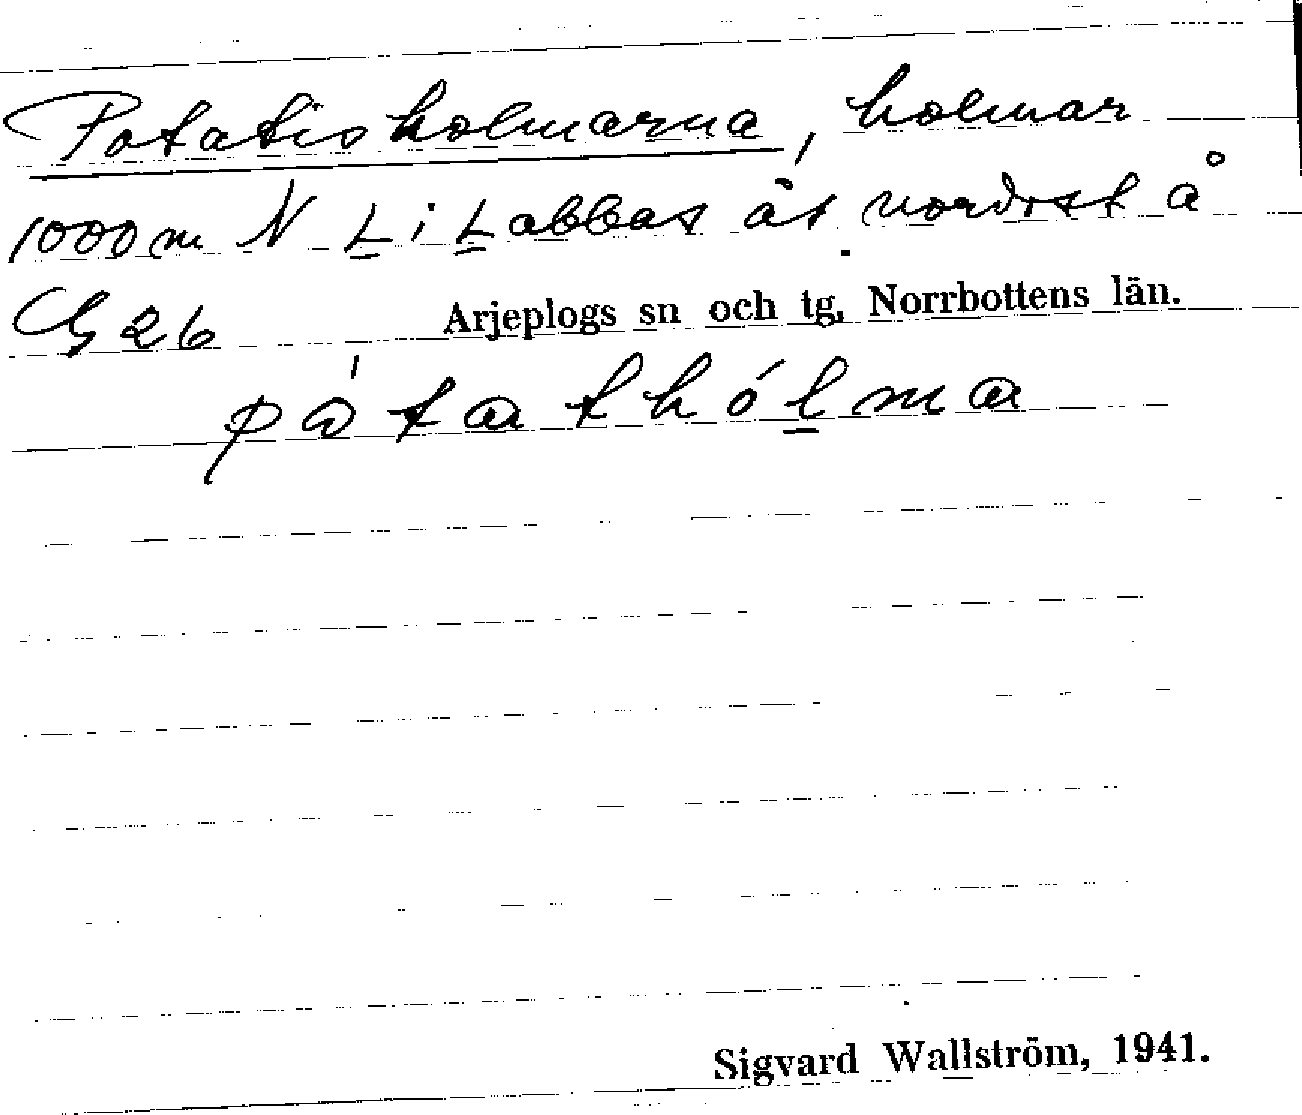 Potatisholmarna, holmar
1000 m N L i Labbas åt nordost å
G 26 Arjeplogs sn och tg, Norrbottens län.
pàtathólma
Sigvard Wallström, 1941.